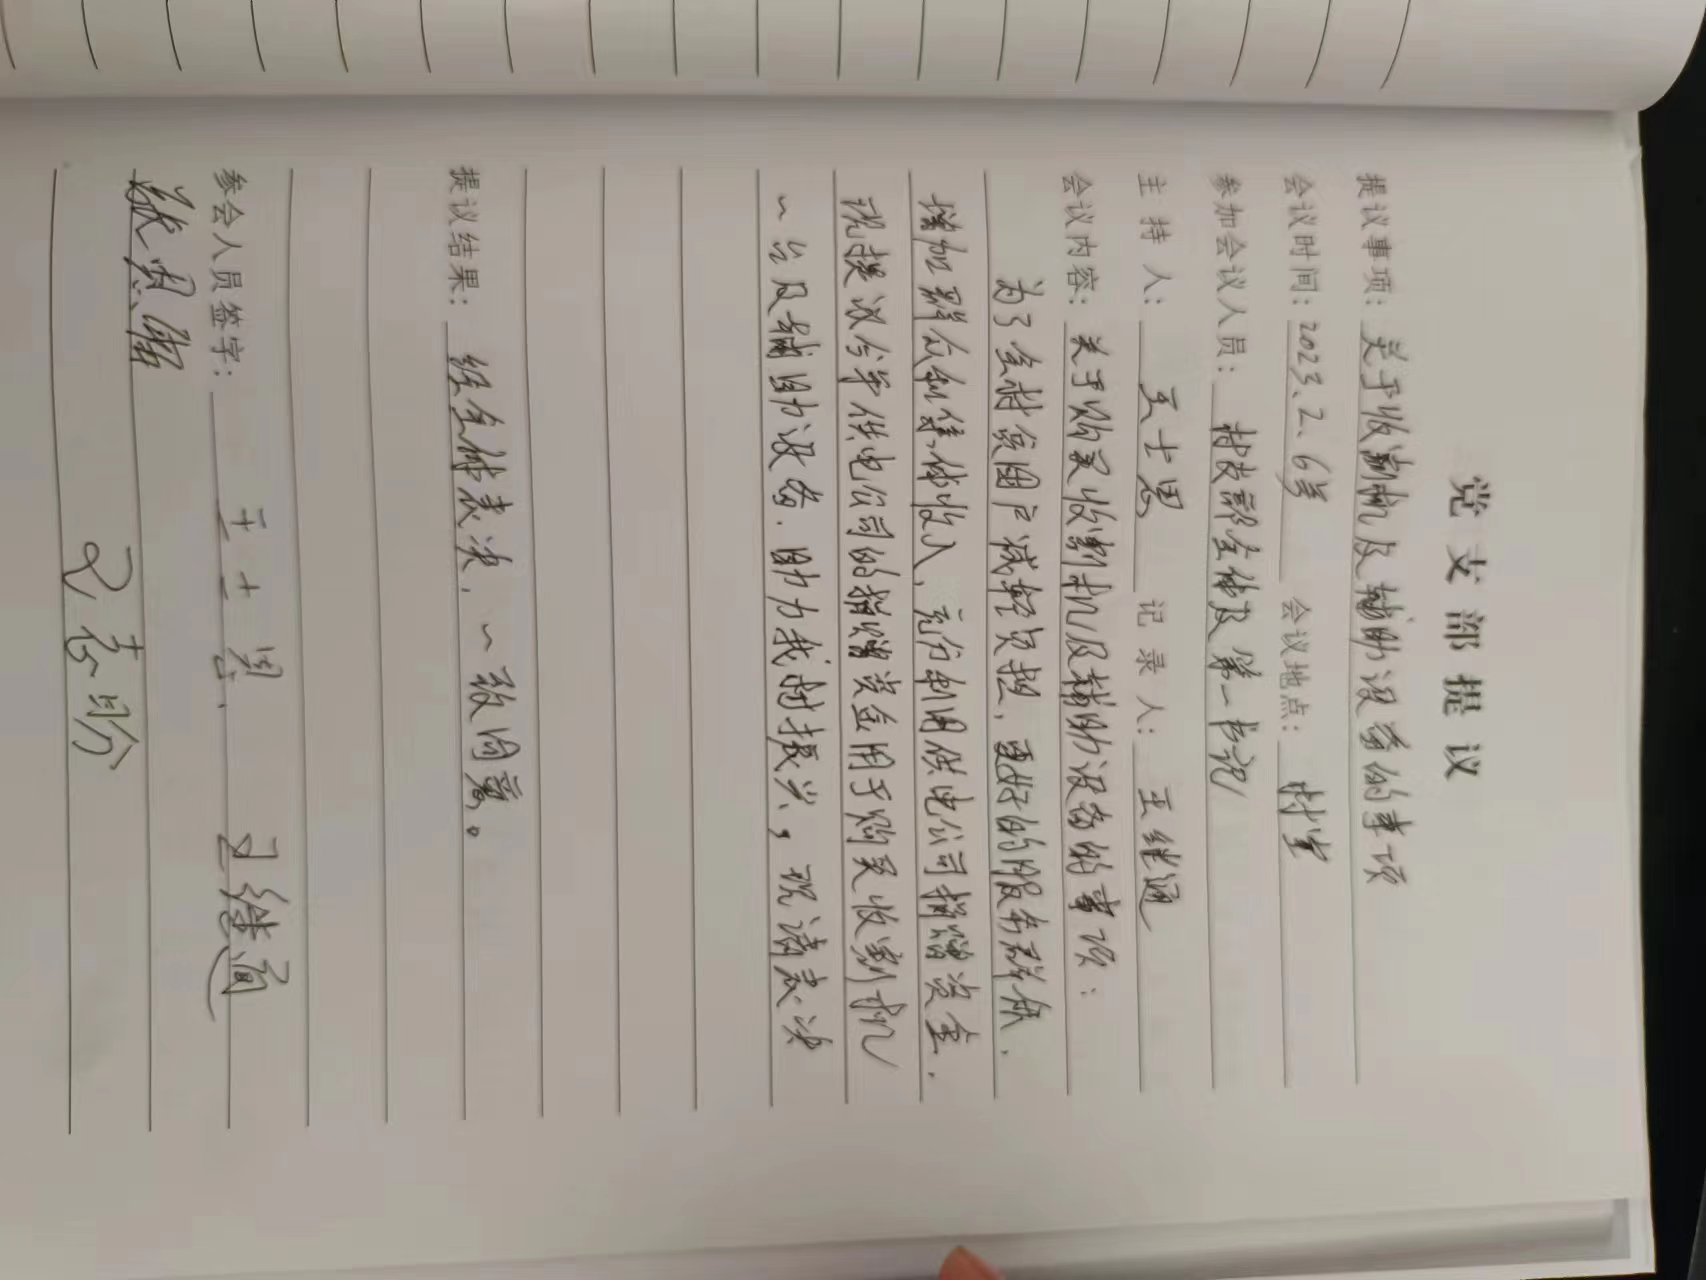 党支部提议
提议事项：关于收割机及辅助设备的事项
会议时间：2023.2.6号 会议地点：村室
参加会议人员：村支部全体及第一书记
主持人：王士恩 记录人：王继通
会议内容：关于购买收割机及辅助设备的事项：
为了全村贫困户减轻负担，更好的服务群众，
增加群众和集体收入，充分利用供电公司捐赠资金，
现提议今年供电公司的捐赠资金用于购买收割机
一台及辅助设备，助力我村振兴，现请表决
提议结果：经全体表决，一致同意。
参会人员签字：王士恩、 王继通
张恩
王志盼